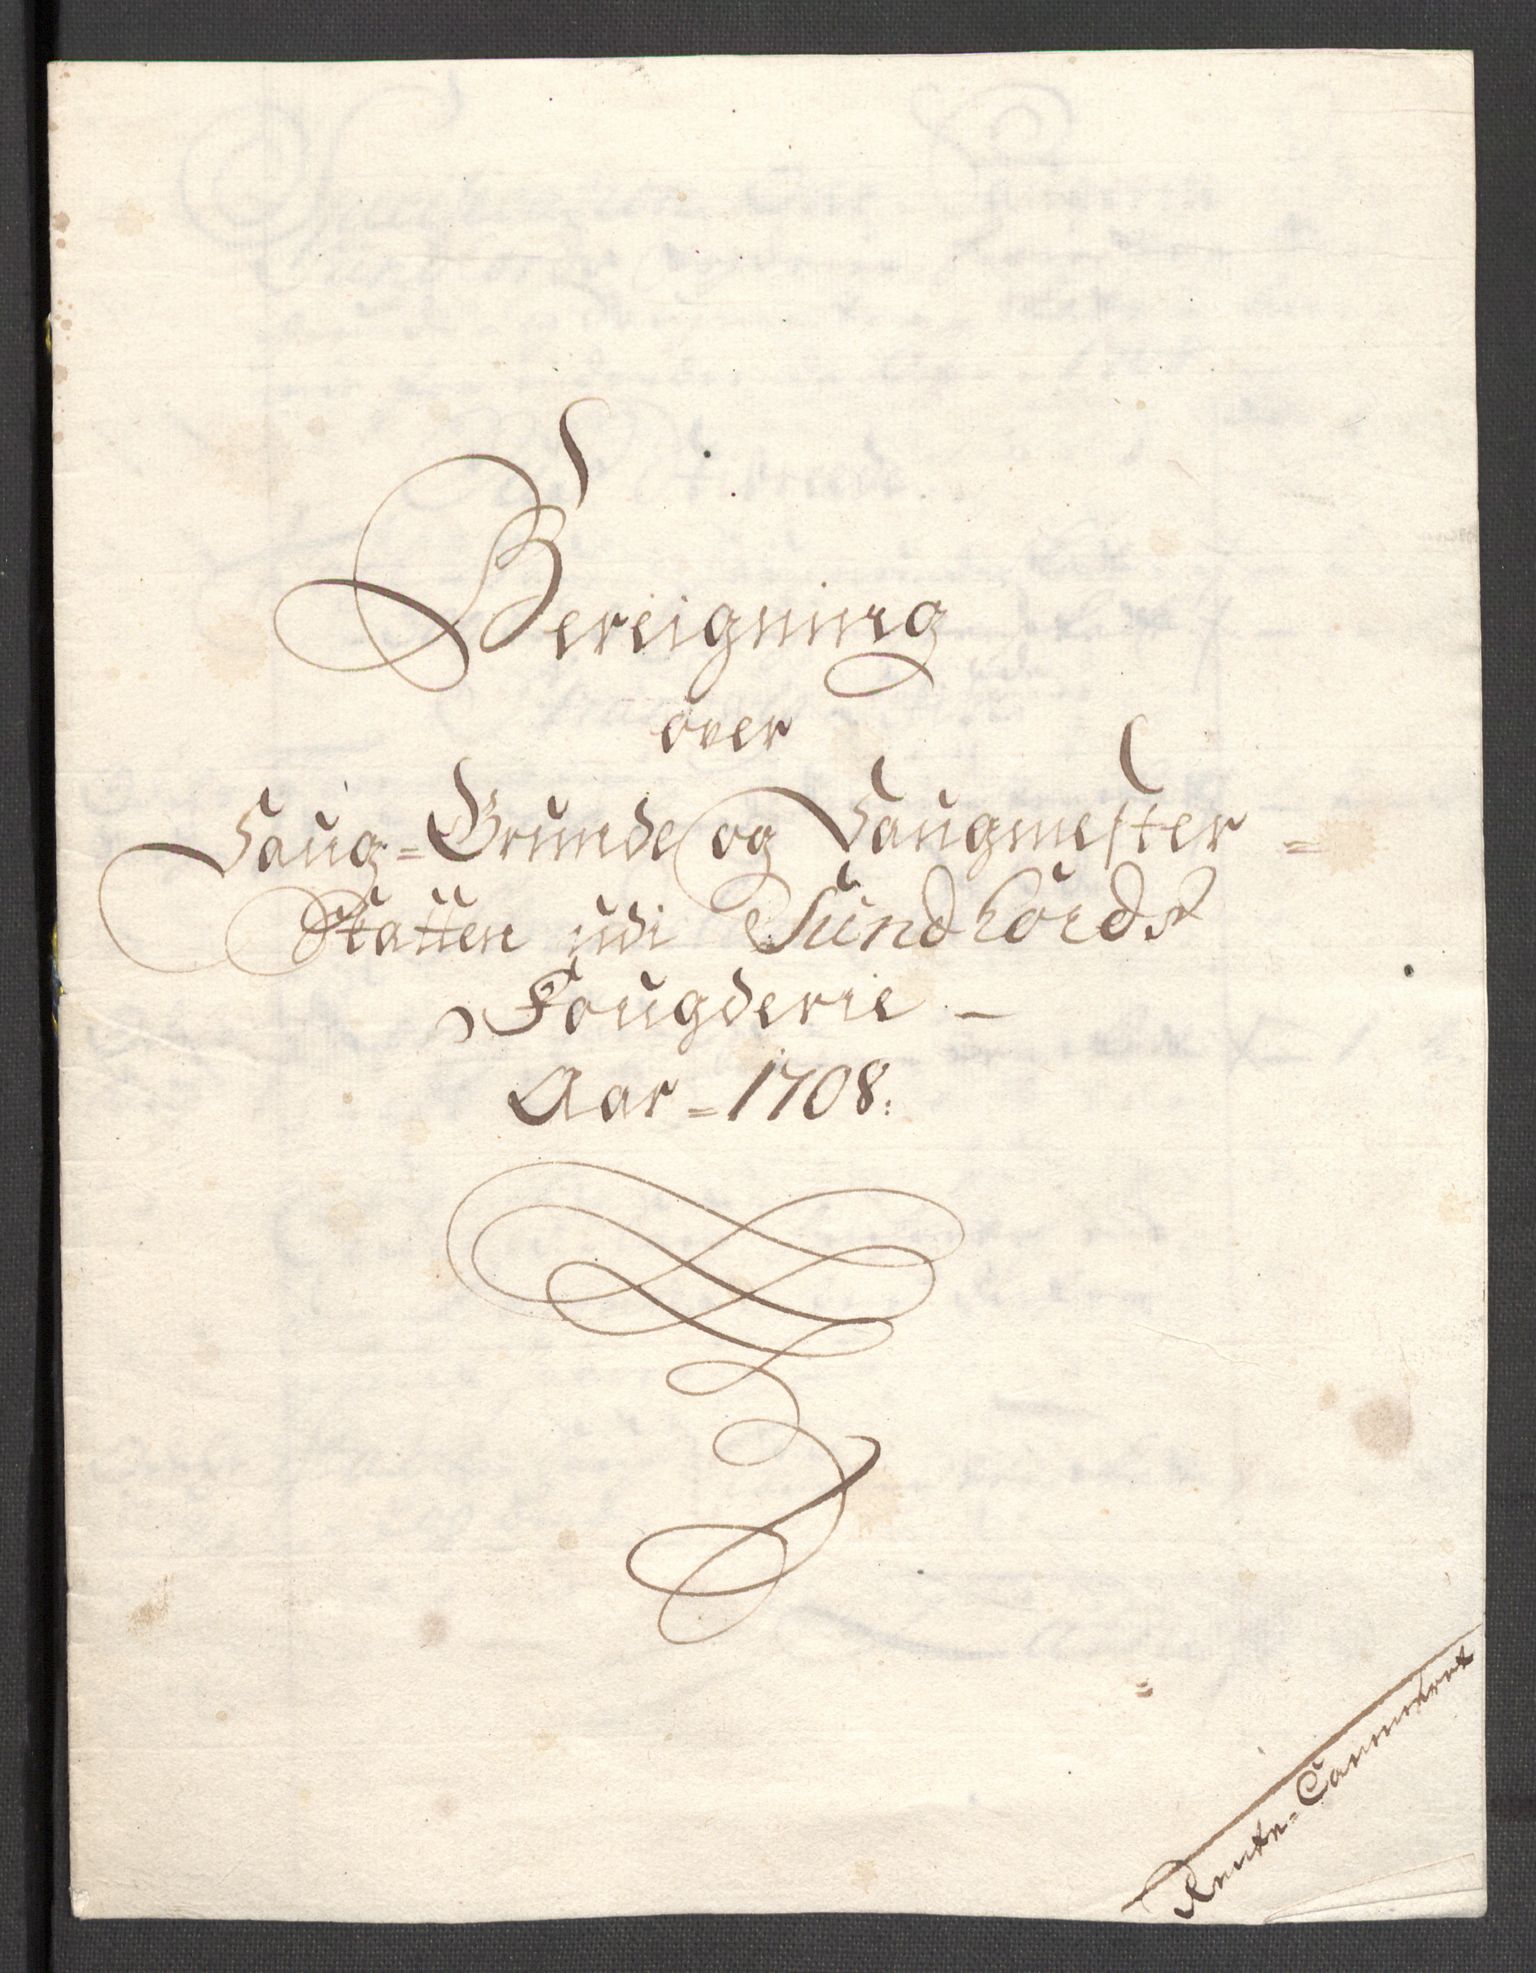 Bereigning
over
Saug=Grunde og Saugmester=
Skatten udi Sundhords
Fougderie —
Aar = 1708:
Rente=Cammeret